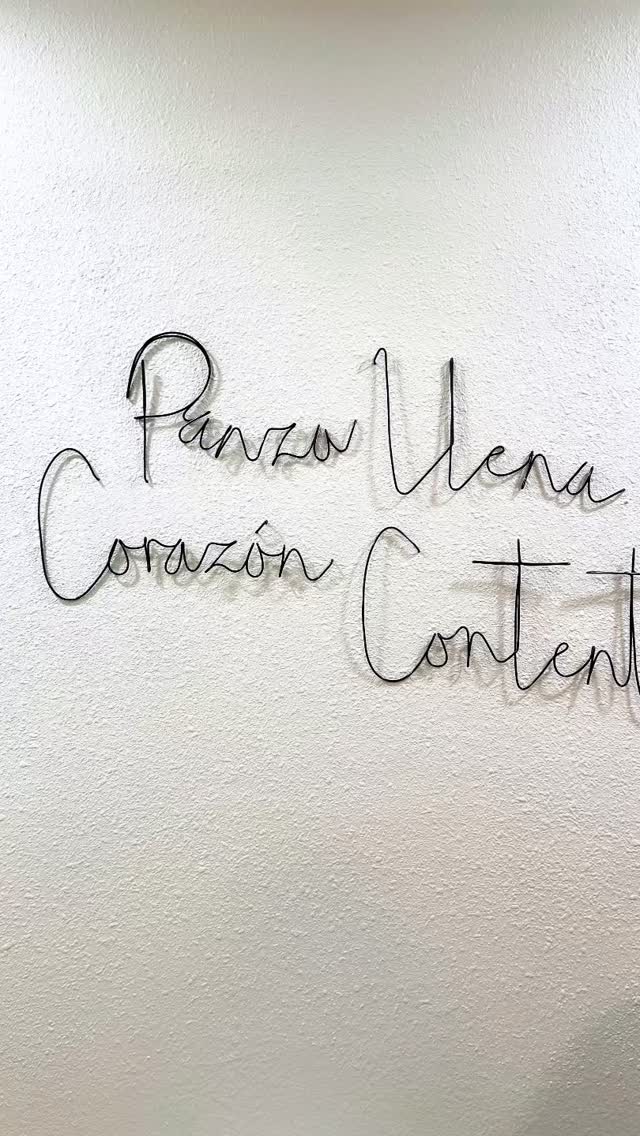 Panza Llena
Corazón Content